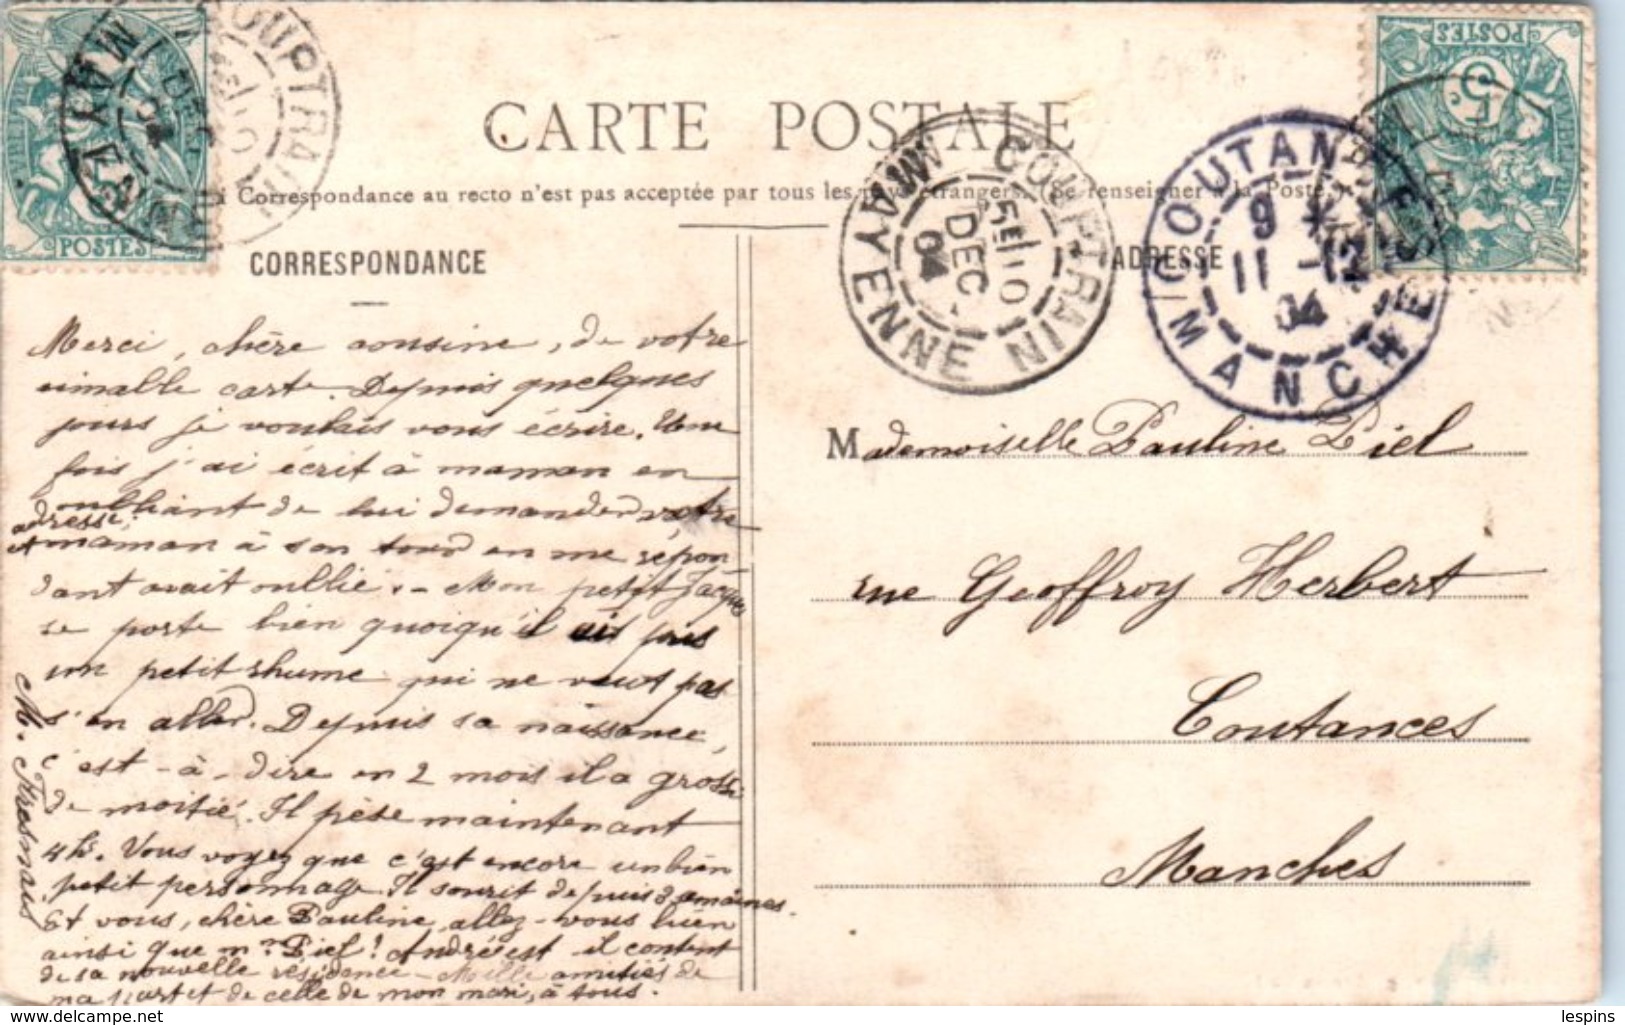 CARTE POSTALE
Correspondance au recto n'est pas acceptée par tous les pays étrangers. (Se renseigner à la Poste
CORRESPONDANCE
ADRESSE
POSTES
POSTES
COUPTRAIN
MAYENNE
DEC.
04
COUPTRAIN
MAYENNE
5E/10
DEC.
04
COUTANCES
MANCHE
9 *
11 -12
04
Merci, chère cousine, de votre
aimable carte. Depuis quelques
jours je voulais vous écrire. Une
fois j'ai écrit à maman en
oubliant de lui demander votre
adresse;
et maman à son tour en me répon-
dant avait oublié. - Mon petit Jacques
se porte bien quoiqu'il ait pris
un petit rhume qui ne veut pas
s'en aller. Depuis sa naissance,
c'est-à-dire en 2 mois il a grossi
de moitié. Il pèse maintenant
4 k. Vous voyez que c'est encore un bien
petit personnage. Il sourit depuis 3 semaines.
Et vous, chère Pauline, allez-vous bien
ainsi que m.r Piel! André est il content
de sa nouvelle résidence - Mille amitiés de
ma part et de celle de mon mari, à tous.
M. Fresnais
Mademoiselle Pauline Piel
rue Geoffroy Herbert
Coutances
Manches
lespins